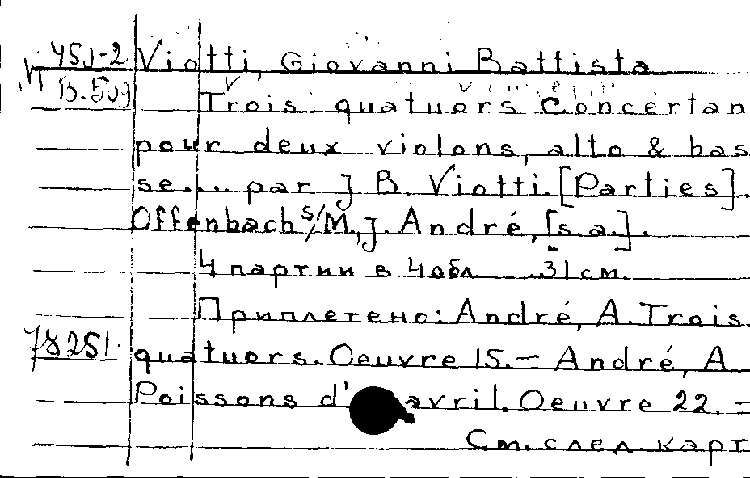 451-2 Viotti, Giovanni Battista
VI B.509
Trois quatuors concertan
pour deux violons, alto & bas
se... par J. B. Viotti. [Parties].
Offenbach s/M., J. André, [s.a.].
4 партии в 4 обл 31 см.
Приплетено: André, A. Trois
78251. quatuors. Oeuvre 15.— André, A
Poissons d' avril. Oeuvre 22. —
См. след карт